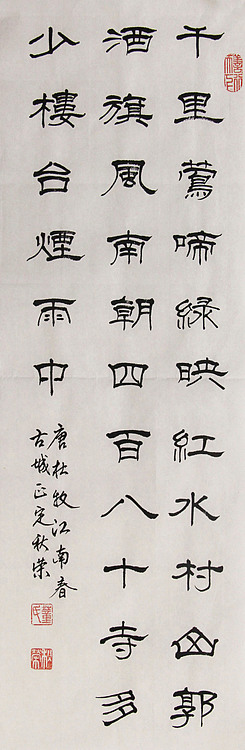 千里鶯啼緑映紅水村山郭
酒旗風南朝四百八十寺多
少樓台煙雨中
唐杜牧江南春
古城正定秋榮